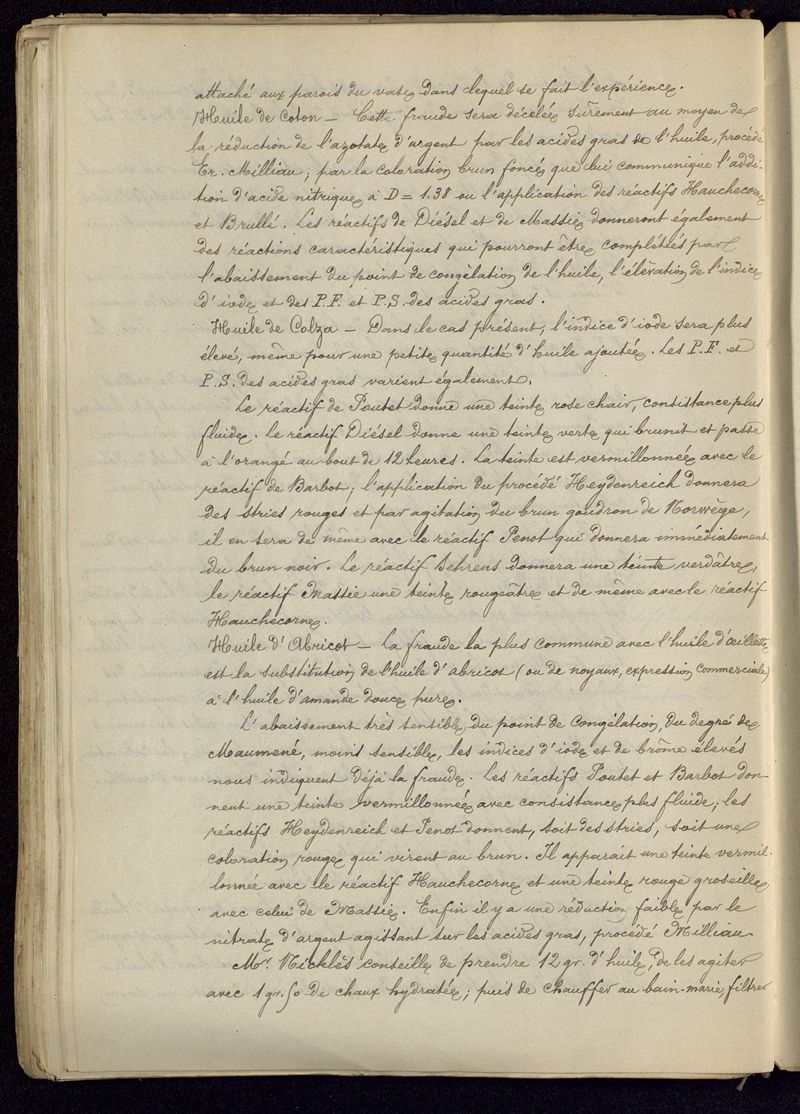 attaché aux parois du vase dans lequel se fait l'expérience.
Huile de Coton — Cette fraude sera décelée sûrement au moyen de
la réduction de l'azotate d'argent par les acides gras de l'huile, procédé
Er. Milliau; par la coloration brun foncé que lui communique l'addi-
tion d'acide nitrique à D = 1.38 ou l'application des réactifs Hauchecorne
et Brullé. Les réactifs de Diésel et de Massie donneront également
des réactions caractéristiques qui pourront être complétées par
l'abaissement du point de congélation de l'huile, l'élévation de l'indice
d'iode et des P.F. et P.S. des acides gras.
Huile de Colza — Dans le cas présent, l'indice d'iode sera plus
élevé, même pour une petite quantité d'huile ajoutée. Les P.F. et
P.S. des acides gras varient également.
Le réactif de Poutet donne une teinte rose chair, consistance plus
fluide. Le réactif Diésel donne une teinte verte qui brunit et passe
à l'orangé au bout de 12 heures. La teinte est vermillonnée avec le
réactif de Barbot; l'application du procédé Heydenreich donnera
des stries rouges et par agitation du brun goudron de Norwège,
il en sera de même avec le réactif Penot qui donnera immédiatement
du brun noir. Le réactif Behrens donnera une teinte verdâtre,
le réactif Massie une teinte rougeâtre et de même avec le réactif
Hauchecorne.
Huile d'Abricot — La fraude la plus commune avec l'huile d'œillette
est la substitution de l'huile d'abricot (ou de noyaux, expression commerciale)
à l'huile d'amande douce pure.
L'abaissement très sensible du point de congélation, du degré de
Maumené, moins sensible, les indices d'iode et de brôme élevés
nous indiquent déjà la fraude. Les réactifs Poutet et Barbot don-
nent une teinte vermillonnée avec consistance plus fluide; les
réactifs Heydenreich et Penot donnent, soit des stries, soit une
coloration rouge qui virent au brun. Il apparaît une teinte vermil-
lonnée avec le réactif Hauchecorne et une teinte rouge groseille
avec celui de Massie. Enfin il y a une réduction faible par le
nitrate d'argent agissant sur les acides gras, procédé Milliau.
Mr. Nicklès conseille de prendre 12 gr. d'huile, de les agiter
avec 1 gr. 50 de chaux hydratée; puis de chauffer au bain-marie, filtrer